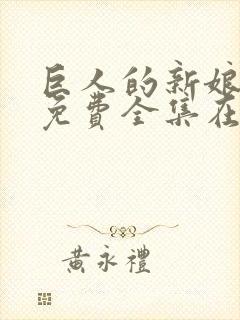 巨人的新娘
免費全集在
黃永禮